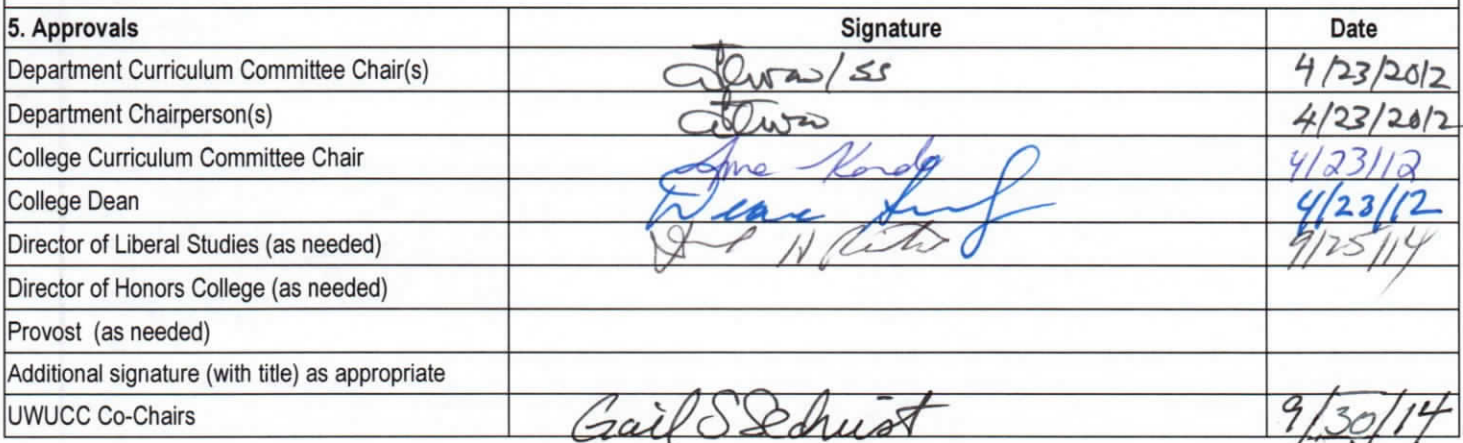 5. Approvals Signature Date
Department Curriculum Committee Chair(s) / SS 4/23/2012
Department Chairperson(s) 4/23/2012
College Curriculum Committee Chair 4/23/12
College Dean 4/23/12
Director of Liberal Studies (as needed) 9/25/14
Director of Honors College (as needed)
Provost (as needed)
Additional signature (with title) as appropriate
UWUCC Co-Chairs Gail S Sechrist 9/30/14